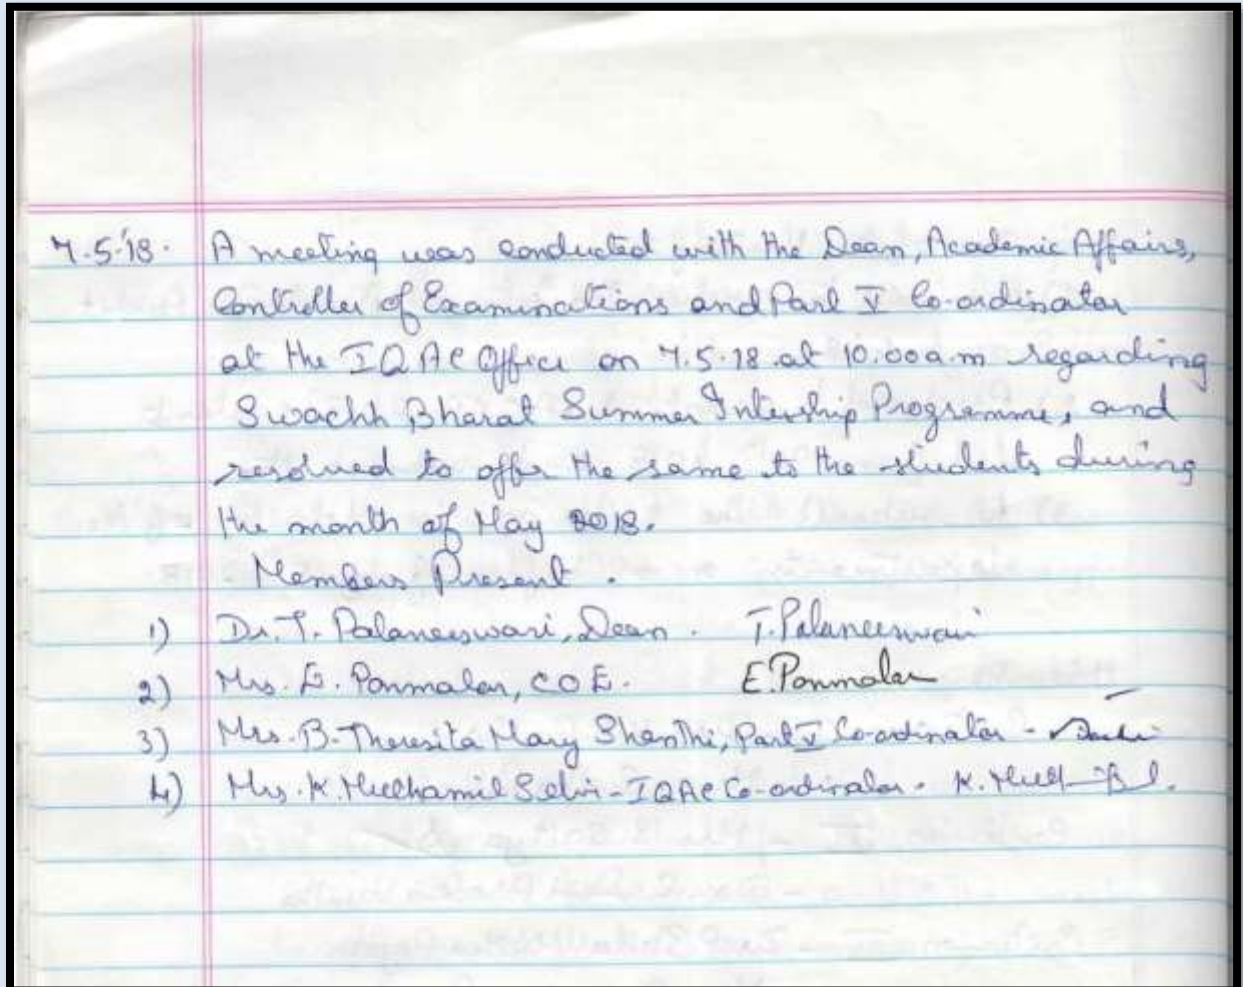 7.5.'18. A meeting was conducted with the Dean, Academic Affairs,
Controller of Examinations and Part V Co-ordinator
at the IQAC Office on 7.5.18 at 10.00 a.m regarding
Swachh Bharat Summer Intership Programme, and
resolved to offer the same to the students during
the month of May 2018.
Members Present.
1) Dr. T. Palaneeswari, Dean. T. Palaneeswari
2) Mrs. E. Ponmalar, COE. E. Ponmalar
3) Mrs. B. Theresita Mary Shanthi, Part V Co-ordinator -
4) Mrs. K. Muthamil Selvi - IQAC Co-ordinator. K.